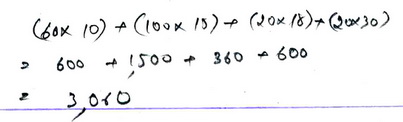 (60x 10) + (100x 15) + (20x 18) + (20x30)
= 600 + 1,500 + 360 + 600
= 3,060